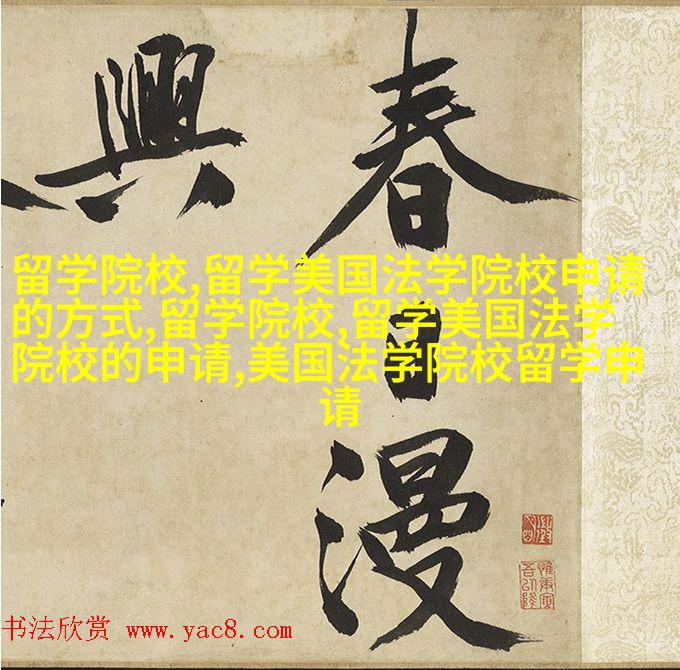 春日漫
興
留学院校,留学美国法学院校申请
的方式,留学院校,留学美国法学
院校的申请,美国法学院校留学申
请
书法欣赏 www.yac8.com